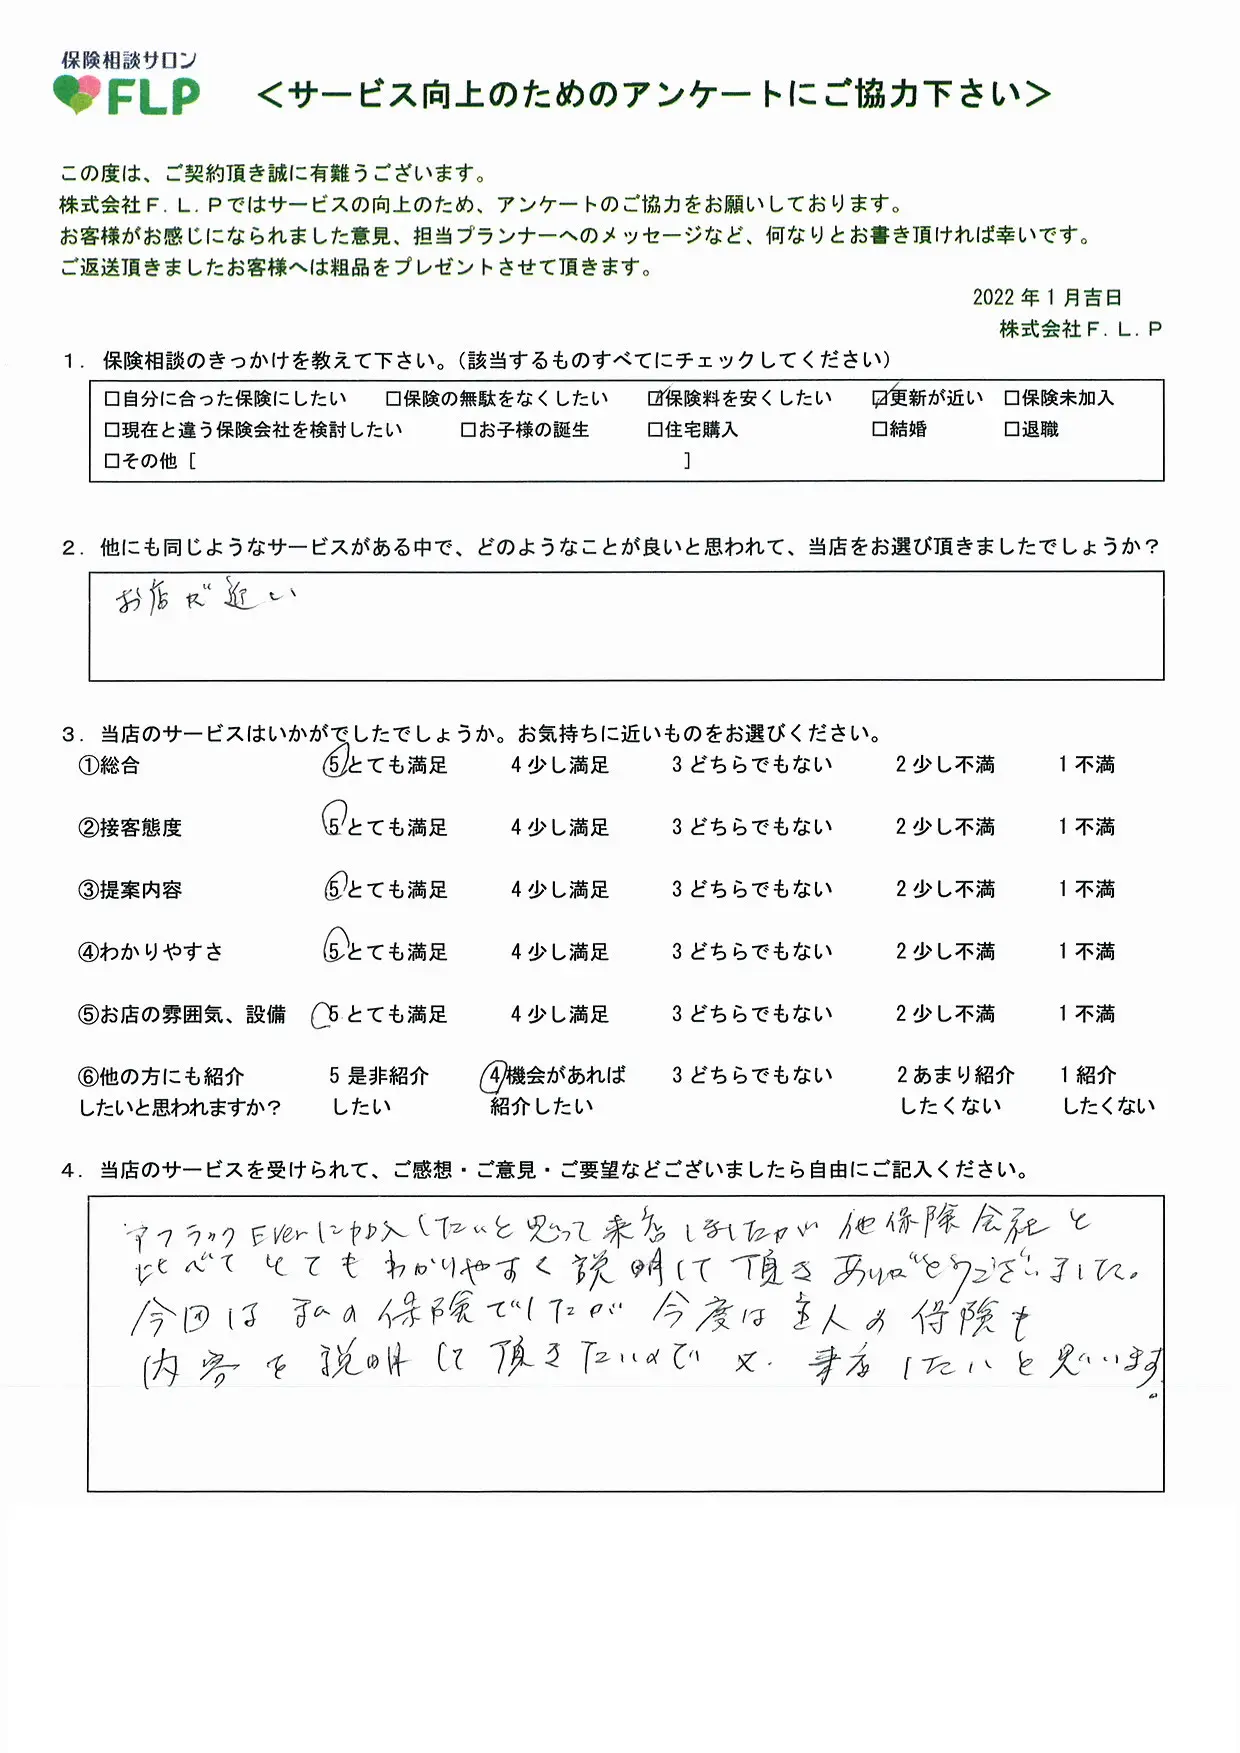 保険相談サロン
FLP
＜サービス向上のためのアンケートにご協力下さい＞
この度は、ご契約頂き誠に有難うございます。
株式会社Ｆ.Ｌ.Ｐではサービスの向上のため、アンケートのご協力をお願いしております。
お客様がお感じになられました意見、担当プランナーへのメッセージなど、何なりとお書き頂ければ幸いです。
ご返送頂きましたお客様へは粗品をプレゼントさせて頂きます。
2022 年 1 月吉日
株式会社Ｆ.Ｌ.Ｐ
１. 保険相談のきっかけを教えて下さい。（該当するものすべてにチェックしてください）
□自分に合った保険にしたい □保険の無駄をなくしたい ☑保険料を安くしたい ☑更新が近い □保険未加入
□現在と違う保険会社を検討したい □お子様の誕生 □住宅購入 □結婚 □退職
□その他 [ ]
２. 他にも同じようなサービスがある中で、どのようなことが良いと思われて、当店をお選び頂きましたでしょうか？
お店が近い
３. 当店のサービスはいかがでしたでしょうか。お気持ちに近いものをお選びください。
①総合 5 とても満足 4 少し満足 3 どちらでもない 2 少し不満 1 不満
②接客態度 5 とても満足 4 少し満足 3 どちらでもない 2 少し不満 1 不満
③提案内容 5 とても満足 4 少し満足 3 どちらでもない 2 少し不満 1 不満
④わかりやすさ 5 とても満足 4 少し満足 3 どちらでもない 2 少し不満 1 不満
⑤お店の雰囲気、設備 5 とても満足 4 少し満足 3 どちらでもない 2 少し不満 1 不満
⑥他の方にも紹介 5 是非紹介 4 機会があれば 3 どちらでもない 2 あまり紹介 1 紹介
したいと思われますか？ したい 紹介したい したくない したくない
４. 当店のサービスを受けられて、ご感想・ご意見・ご要望などございましたら自由にご記入ください。
アフラックEverに加入したいと思って来店しましたが 他保険会社と
比べて とても わかりやすく 説明して 頂き ありがとうございました。
今回は 私の 保険でしたが 今度は 主人の 保険も
内容を 説明して 頂きたいので 又、来店したいと思います。